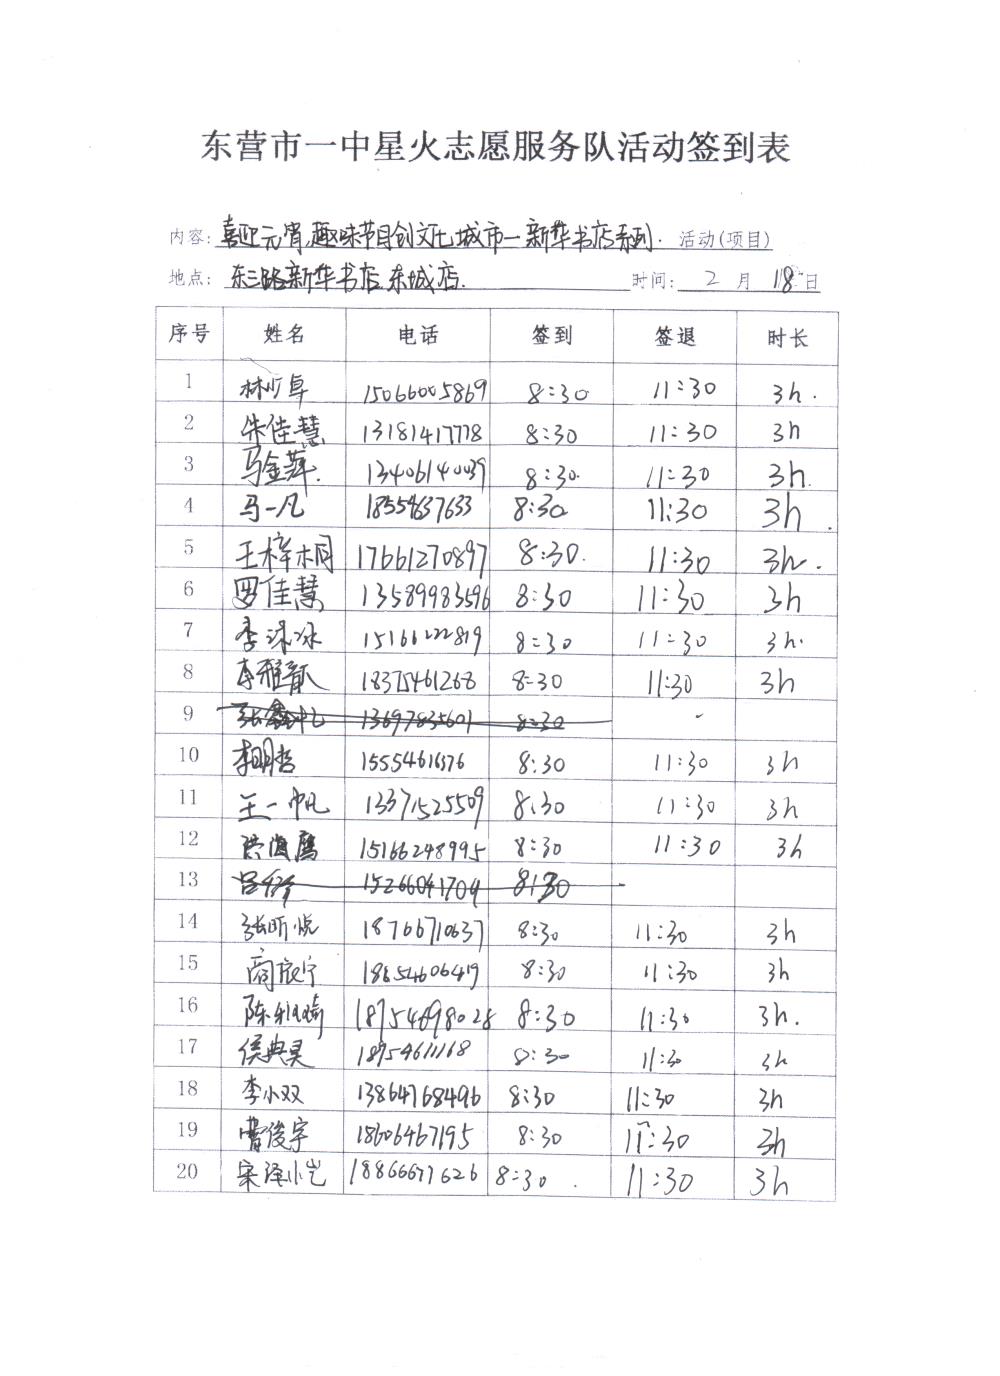 东营市一中星火志愿服务队活动签到表
内容: 喜迎元宵,趣味节目创文化城市一新华书店系列. 活动(项目)
地点: 东三路新华书店东城店. 时间: 2 月 18 日
序号 姓名 电话 签到 签退 时长
1 15066005869 8:30 11:30 3h.
2 朱佳慧 13181417778 8:30 11:30 3h
3 马金萍. 13406140039 8:30. 11:30 3h.
4 马一凡 18554637633 8:30 11:30 3h.
5 王梓桐 17661270897 8:30. 11:30 3h.
6 罗佳慧 13589983596 8:30 11:30 3h
7 李沫冰 15166222819 8:30 11:30 3h.
8 李雅歆 18375461268 8:30 11:30 3h
9 13697835601 8:30
10 李明哲 15554616376 8:30 11:30 3h
11 王一帆 13371525509 8:30 11:30 3h
12 洪海鹰 15166248995 8:30 11:30 3h
13 15266041704 8:30
14 张昕悦 18766710637 8:30 11:30 3h
15 商辰宁 18654606419 8:30 11:30 3h
16 陈雅琦 18754698028 8:30 11:30 3h.
17 侯典昊 18954611168 8:30 11:30 3h
18 李小双 13864768496 8:30 11:30 3h
19 曹俊宇 18606467195 8:30 11:30 3h
20 宋泽恺 18866671626 8:30. 11:30 3h